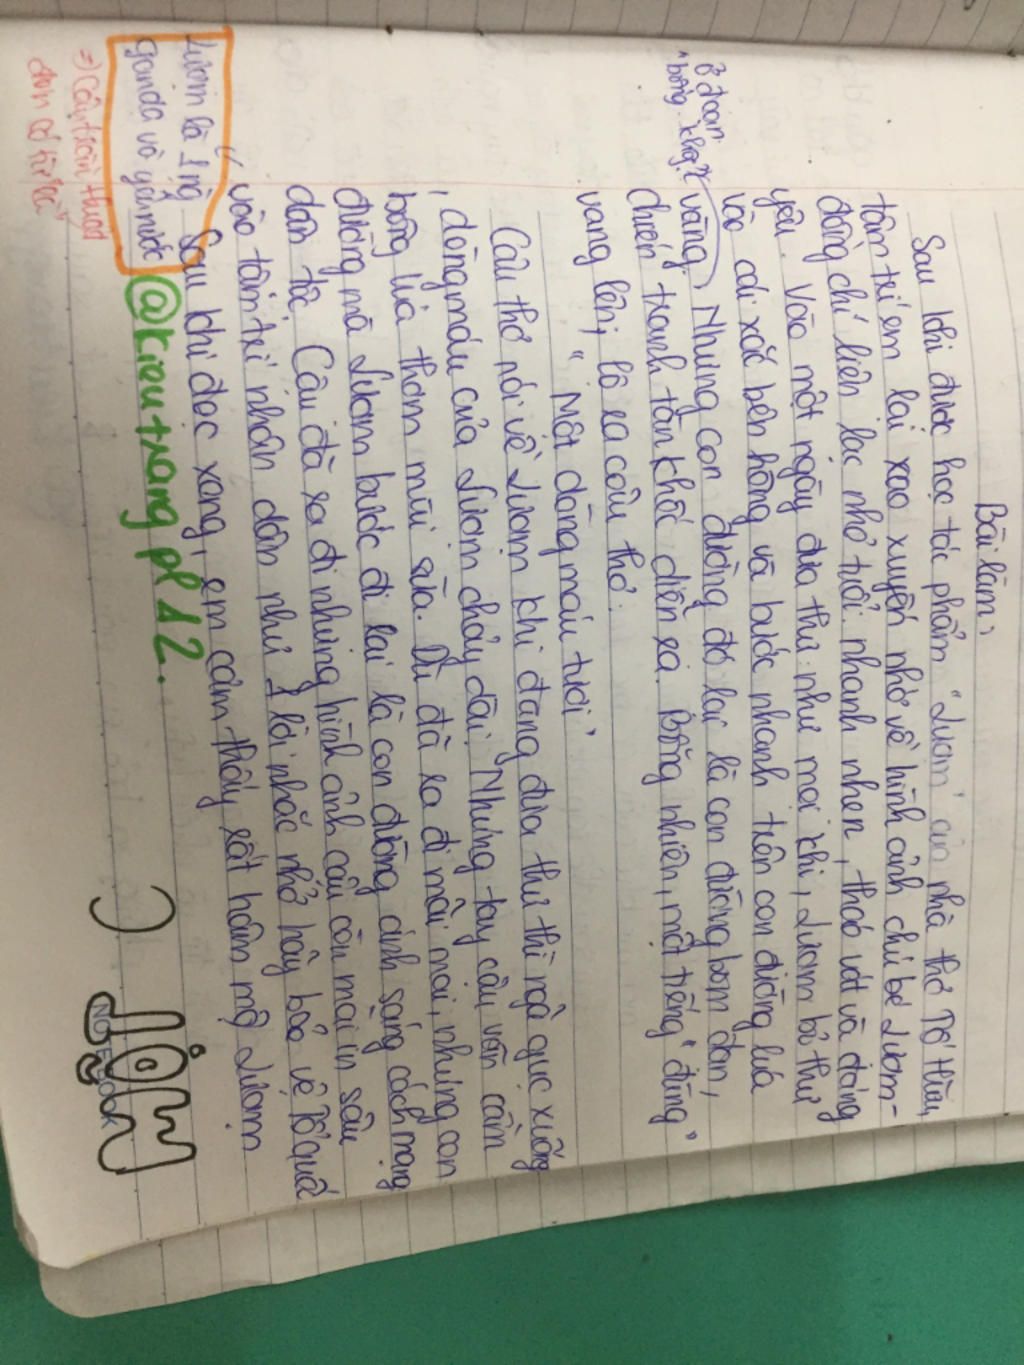 Bài làm:
Sau khi được học tác phẩm "Lượm" của nhà thơ Tố Hữu,
tâm trí em lại xao xuyến nhớ về hình ảnh chú bé Lượm-
đồng chí liên lạc nhỏ tuổi nhanh nhẹn, thoả vát và đáng
yêu. Vào một ngày đưa thư như mọi khi, Lượm bỏ thư
vào cái xắc bên hông và bước nhanh trên con đường lúa
vàng. Nhưng con đường đó lại là con đường bom đạn,
ở đoạn
bông
chiến tranh tàn khốc diễn ra. Bỗng nhiên, một tiếng "đùng"
vang lên, lộ ra câu thơ:
"Một dòng máu tươi"
Câu thơ nói về Lượm khi đang đưa thư thì ngã gục xuống
, dòng máu của Lượm chảy dài. Nhưng tay cậu vẫn cầm
bông lúa thơm mùi sữa. Dù đã ra đi mãi mãi, nhưng con
đường mà Lượm bước đi lại là con đường ánh sáng cách mạng
dân tộc. Cậu đã ra đi nhưng hình ảnh cậu còn mãi in sâu
vào tâm trí nhân dân như 1 lời nhắc nhở hãy bảo vệ Tổ quốc
Sau khi đọc xong, em cảm thấy rất hâm mộ Lượm
Lượm là 1 ng
gan dạ và yêu nước
=) Câu trần thuật
đơn có từ "là"
@kieutrang pl 12.
NOTEBOOK